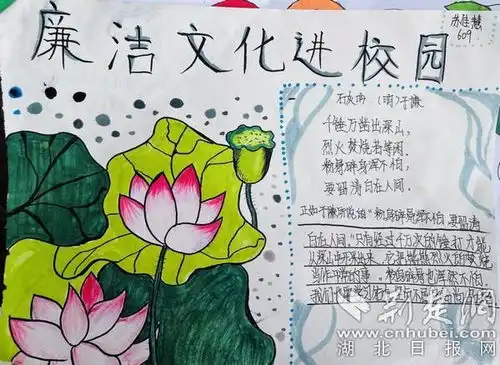 廉洁文化进校园
苏佳慧
609
石灰吟 (明)于谦
千锤万凿出深山,
烈火焚烧若等闲。
粉身碎骨浑不怕,
要留清白在人间。
正如于谦所说的"粉身碎骨浑不怕,要留清
白在人间。"只有经过千万次的锤打才能
从深山中开采出来,它把熊熊烈火的焚烧
当作平常的事,粉身碎骨也浑然不怕,
我们也要学习
荆楚网
www.cnhubei.com
湖北日报网